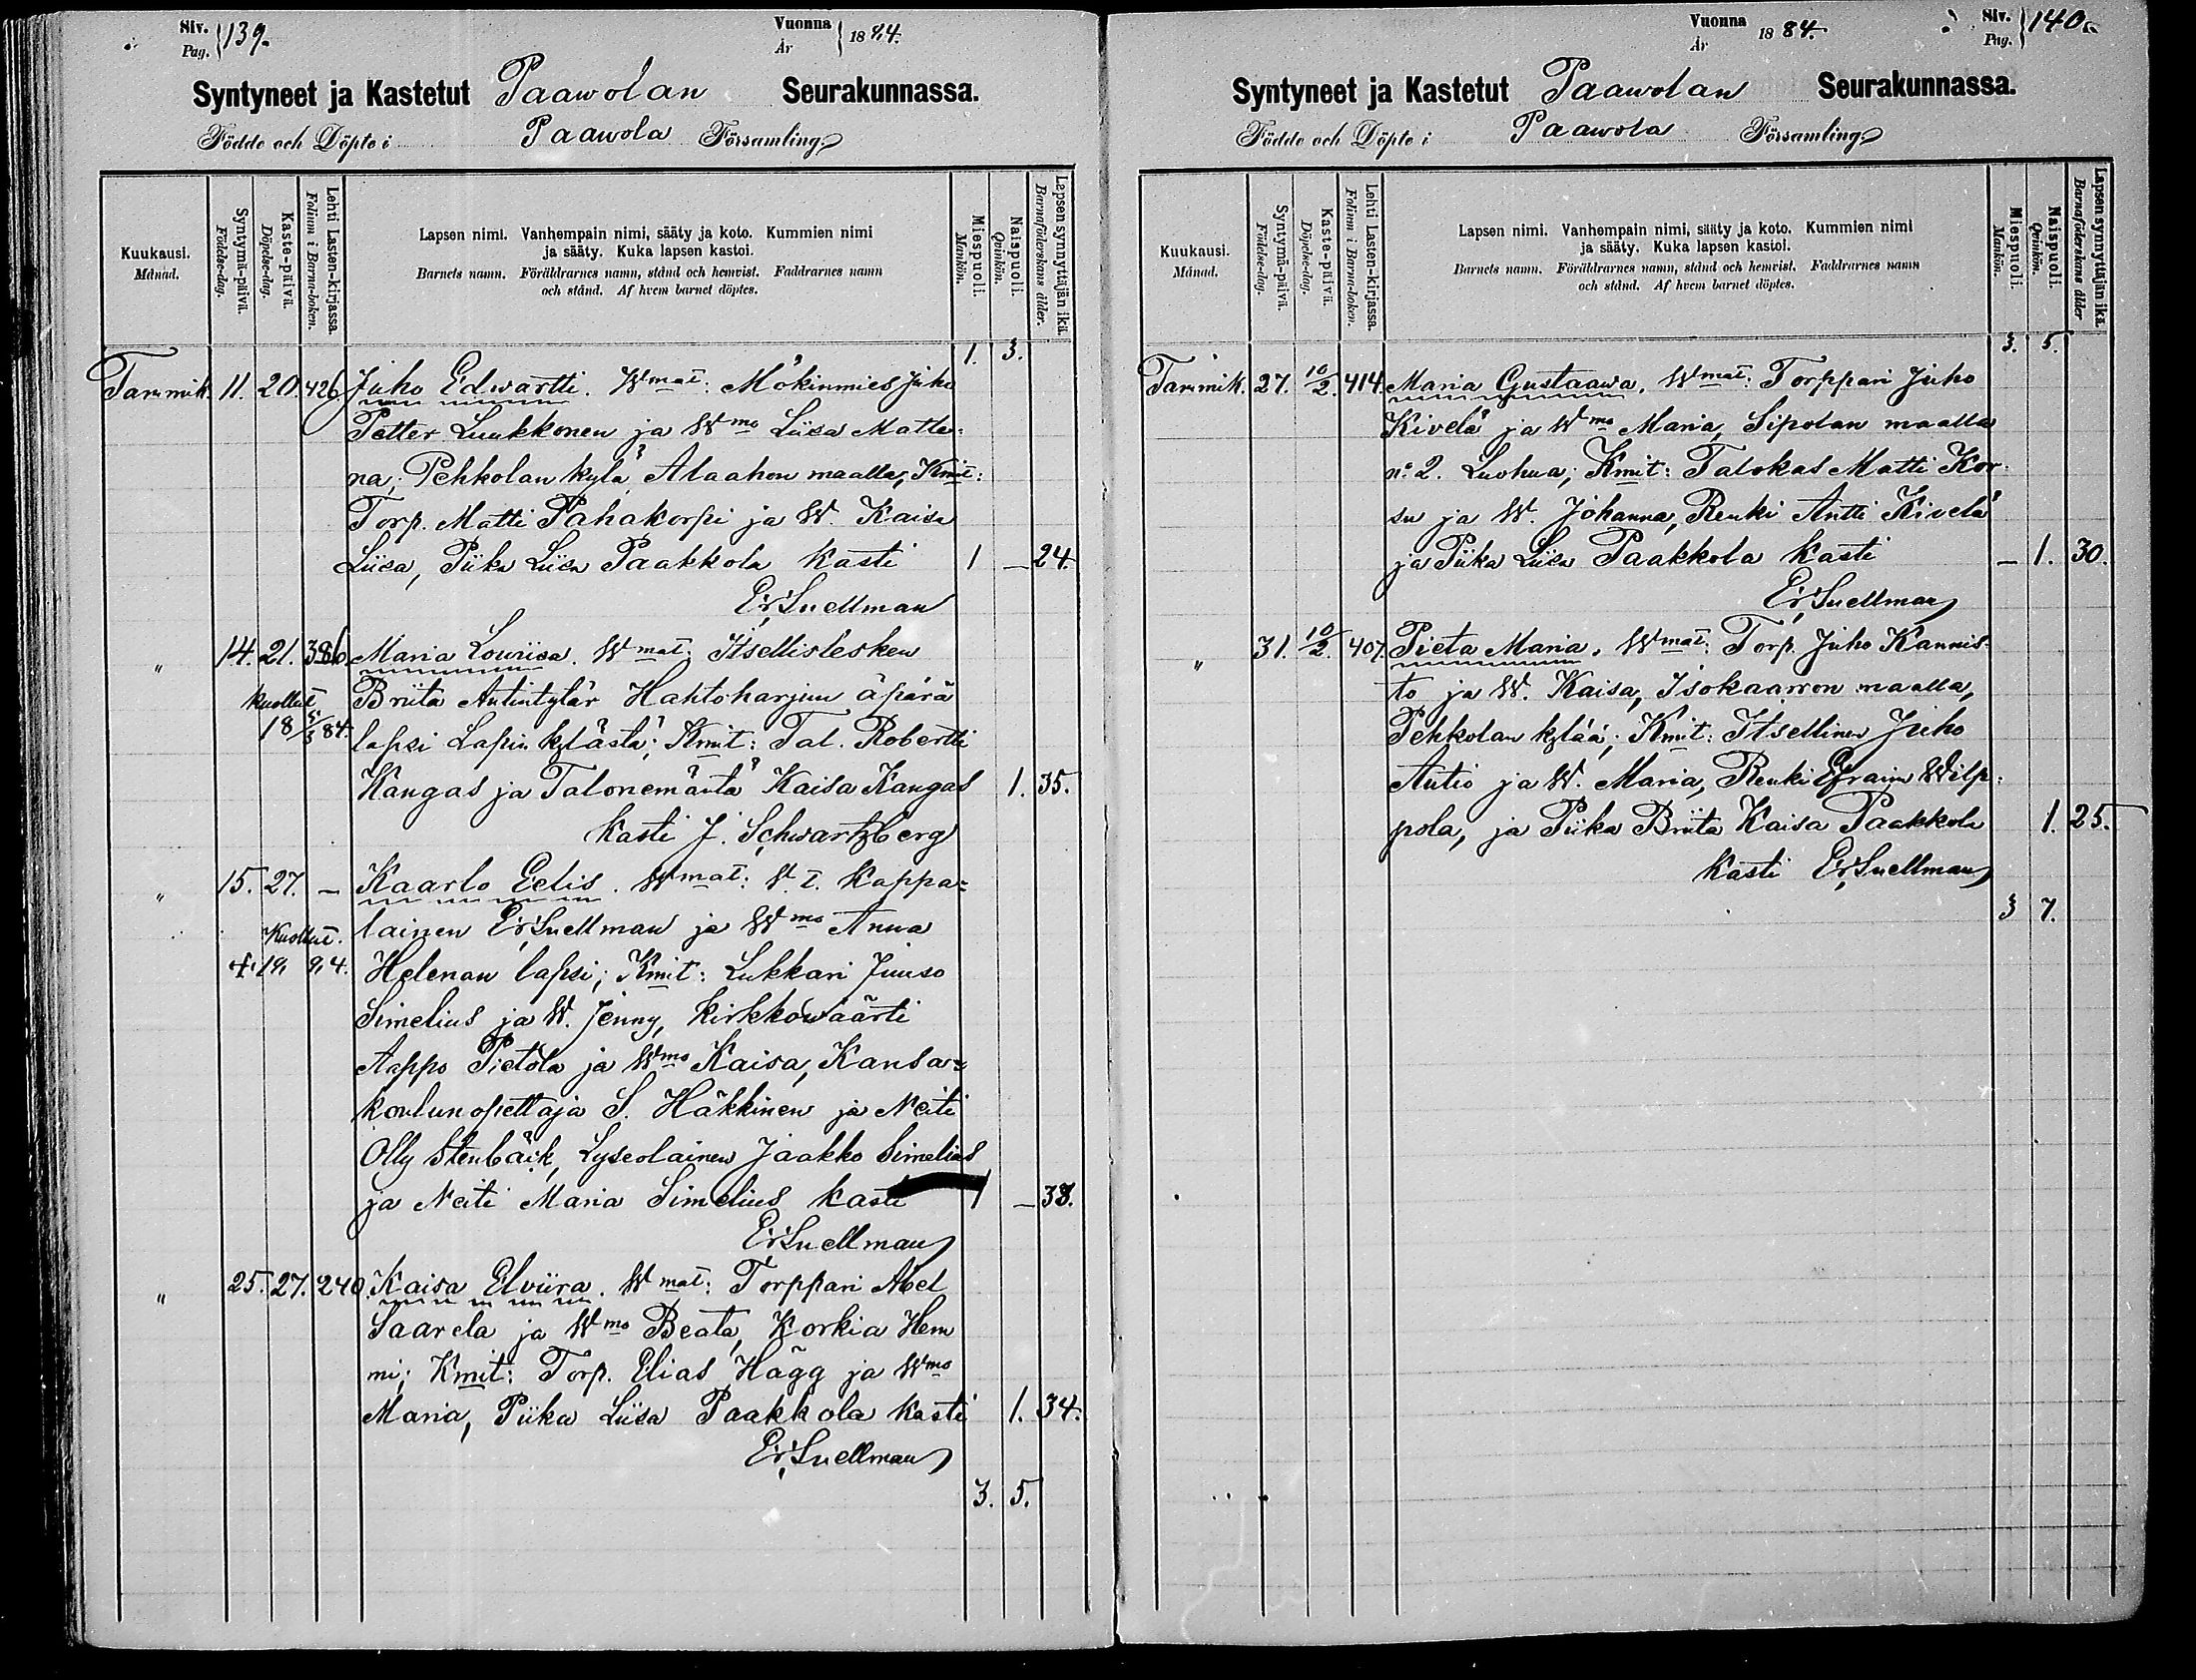 Siv.
Pag. 139.
Vuonna
År 1884.
Syntyneet ja Kastetut Paawolan Seurakunnassa.
Födde och Döpte i Paawola Församling
Kuukausi.
Månad.
Syntymä-päivä.
Födelse-dag.
Kaste-päivä.
Döpelse-dag.
Lehti Lasten-kirjassa.
Folium i Barna-boken.
Lapsen nimi. Vanhempain nimi, sääty ja koto. Kummien nimi
ja sääty. Kuka lapsen kastoi.
Barnets namn. Föräldrarnes namn, stånd och hemvist. Faddrarnes namn
och stånd. Af hvem barnet döptes.
Miespuoli.
Mankön.
Naispuoli.
Qvinkön.
Lapsen synnyttäjän ikä.
Barnaföderskans ålder.
1. 3.
Tammik. 11. 20. 426 Juho Edwartti. Wmat: Mökinmies Juho
Petter Luukkonen ja Wmo Liisa Matle-
na, Pehkolan kylä, Alaahon maalla; Kmit:
Torp. Matti Pahakorpi ja W. Kaisa
Liisa, Piika Liisa Paakkola Kasti 1 — 24.
Er. Snellman
" 14. 21. 386. Maria Lowiisa. Wmat: Itsellislesken
kuollut Briita Antintytär Hahtoharjun äpärä
18 5/5 84. lapsi Lapin kylästä; Kmit: Tal. Robertti
Kangas ja Talonemäntä Kaisa Kangas 1. 35.
Kasti J. Schwartzberg
" 15. 27. — Kaarlo Eelis. Wmat: V. t. Kappa-
Kuollut. lainen Er. Snellman ja Wmo Anna
19. 9,4. Helenan lapsi; Kmit: Lukkari Juuso
Simelius ja W. Jenny, Kirkkowäärti
Aappo Pietola ja Wmo Kaisa, Kansa-
koulunopettaja S. Häkkinen ja Neiti
Olly Stenbäck, Lyseolainen Jaakko Simelius
ja Neiti Maria Simelius Kasti 1 — 38.
Er. Snellman
" 25. 27. 240. Kaisa Elviira. Wmat: Torppari Abel
Saarela ja Wmo Beata, Korkia Hem
mi; Kmit: Torp. Elias Hägg ja Wmo
Maria, Piika Liisa Paakkola Kasti 1. 34.
Er. Snellman
3. 5.
Vuonna
År 1884.
Siv.
Pag. 140.
Syntyneet ja Kastetut Paawolan Seurakunnassa.
Födde och Döpte i Paawola Församling
Kuukausi.
Månad.
Syntymä-päivä.
Födelse-dag.
Kaste-päivä.
Döpelse-dag.
Lehti Lasten-kirjassa.
Folium i Barna-boken.
Lapsen nimi. Vanhempain nimi, sääty ja koto. Kummien nimi
ja sääty. Kuka lapsen kastoi.
Barnets namn. Föräldrarnes namn, stånd och hemvist. Faddrarnes namn
och stånd. Af hvem barnet döptes.
Miespuoli.
Mankön.
Naispuoli.
Qvinkön.
Lapsen synnyttäjän ikä.
Barnaföderskans ålder
3. 5.
Tammik. 27. 10/2. 414. Maria Gustaawa. Wmat: Torppari Juho
Kivelä ja Wmo Maria, Sipolan maalla
n:o 2. Luohua; Kmit: Talokas Matti Kor-
su ja W. Johanna, Renki Antti Kivelä
ja Piika Liisa Paakkola Kasti — 1. 30.
Er. Snellman
" 31. 10/2. 407. Pieta Maria. Wmat: Torp. Juho Kannis-
to ja W. Kaisa, Isokaarron maalla,
Pehkolan kylää; Kmit: Itsellinen Juho
Autio ja W. Maria, Renki Efraim Wilp-
pola, ja Piika Briita Kaisa Paakkola 1. 25.
Kasti Er. Snellman
3 7.